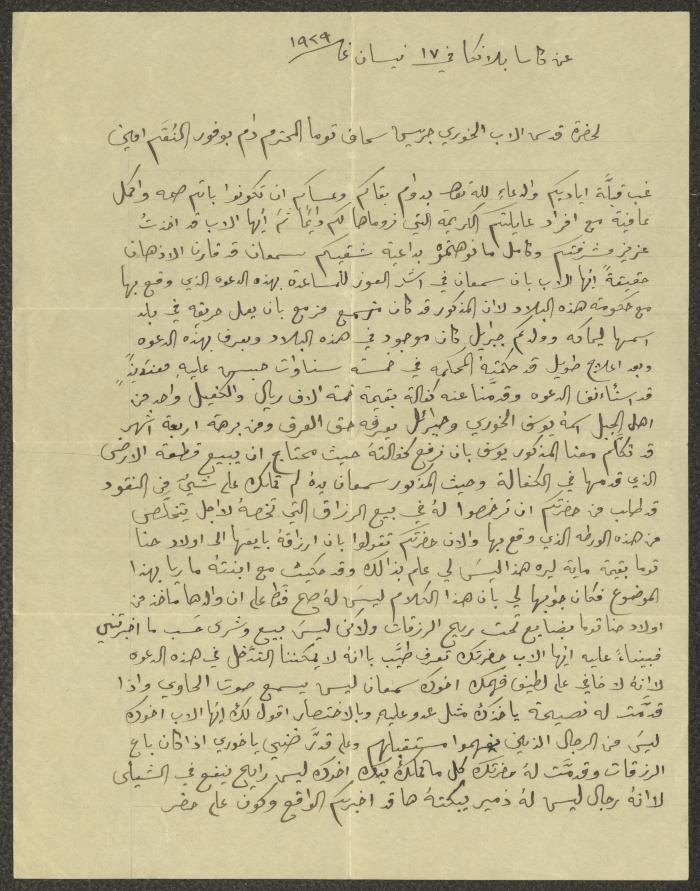 عن كاسا بلانكا في ١٧ نيسان غ ١٩٢٩
لحضرة قدس الاب الخوري جرجس سمعان توما المحترم دام بوفور النُقَم امين
غب قبلَّة اياديكم والدعاء لله تعالى بدوام بقاكم وعساكم ان تكونوا باتم صحه واكمل
عافية مع افراد عايلتكم الكريمة التي نروماها لكم دايمًا ثمَّ ايُها الاب قد اخذتُ
عزيز مشرفتكم وكامل ما توضحتموهُ بداعية شقيقكم سمعان قد قارن الاذهان
حقيقةً ايُها الاب بان سمعان في اشد العوز للمساعدة بهذه الدعوه الذي وقع بها
مع حكومة هذه البلاد لان المذكور قد كان مزمع بان يعمل حريقه في بلد
اسمها ولدكم جبرايل كان موجود في هذه البلاد ويعرف بهذه الدعوه
وبعد اعلاج طويل قد حكمتهُ المحكمه في خمسة سناوات حبس عليهِ
قد استأنف الدعوه وقدمَّنا عنه كفالة بقيمة خمسة الاف ريال والكفيل واحد من
اهل الجبل اسمهُ يوسف الخوري وجبرايل يعرفه حق المعرف ومن برهة اربعة اشهر
قد تكلَّم معنا المذكور يوسف بان نرفع كفالتهُ حيث محتاج ان يبيع قطعة الارض
الذي قدمها في الكفالة وحيث المذكور سمعان يدهُ لم تملك على شيئ من النقود
قد طلب من حضرتكم ان ترخصوا لهُ في بيع الرزاق التي تخصهُ لاجل يتخلَّص
من هذه الورطه الذي وقع بها والان حضرتكم تقولوا بان ارزاقهُ بايعها الى اولاد حنا
توما بقيمة ماية ليره هذا ليسَ لي علم بذالك وقد حكيت مع ابنتهُ ماريا بهذا
الموضوع فكان جوابها لي بان هذا الكلام ليسَ لهُ صح فقط على ان والدها ماخذ من
اولاد حنا توما بضايع تحت ريع الرزقات ولاكن ليسَ بيع وشرى حسب ما اخبرتني
فبيناءً عليه ايُها الاب حضرتك تعرف طيَّب باانهُ لا يمكننا التدَّخل في هذه الدعوه
لاانهُ لا خافي على لطيف فهمك اخوك سمعان ليس يسمع صوت الحاوي واذا
قدمَّت له نصيحة ياخذك مثل عدو عليهِ وبالاختصار اقول لك ايُها الاب اخوك
ليسَ من الرجال الذين مستقبلهم وعلى قدَّر ظني ياخوري اذا كان باع
الرزقات وقدمَّت لهُ حضرتك كل ما تملك يدك اخوك ليس رايح ينفع في الشيلى
لاانهُ رجال ليس لهُ ذمير يبكتهُ ها قد اخبرتكم الواقع وكون على حضر